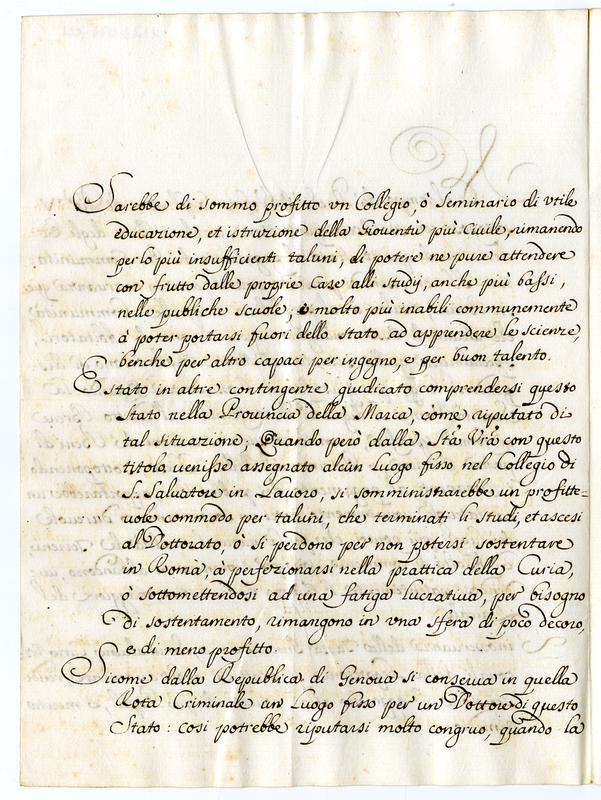 Sarebbe di sommo profitto vn Collegio, ò Seminario di vtile
educazione, et istruzione della Gioventù più Civile, rimanendo
per lo più insufficienti taluni, di potere ne pure attendere
con frutto dalle proprie Case alli studij, anche più bassi,
nelle publiche scuole, e molto più inabili communemente
à poter portarsi fuori dello Stato ad apprendere le scienze,
benche per altro capaci per ingegno, e per buon talento.
E stato in altre contingenze giudicato comprendersi questo
Stato nella Provincia della Marca, come riputato di
tal situazione; Quando però dalla Stà Vrà con questo
titolo venisse assegnato alcun Luogo fisso nel Collegio di
S. Salvatore in Lavoro, si somministrarebbe un profitte=
vole commodo per taluni, che terminati li studi, et ascesi
al Dottorato, ò si perdono per non potersi sostentare
in Roma, à perfezionarsi nella prattica della Curia,
ò sottomettendosi ad una fatiga lucrativa, per bisogno
di sostentamento, rimangono in vna sfera di poco decoro,
e di meno profitto.
Sicome dalla Republica di Genova si conserva in quella
Rota Criminale un Luogo fisso per un Dottore di questo
Stato: così potrebbe riputarsi molto congruo, quando la